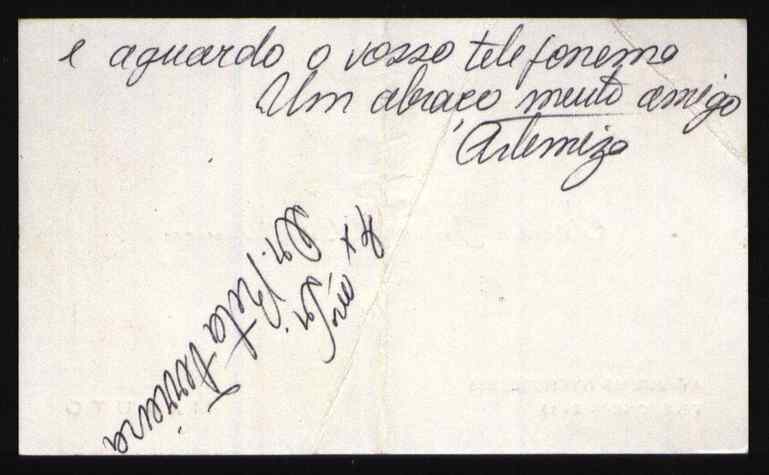 e aguardo o vosso telefonema
Um abraço muito amigo
Artemiza
Rita Ferreira